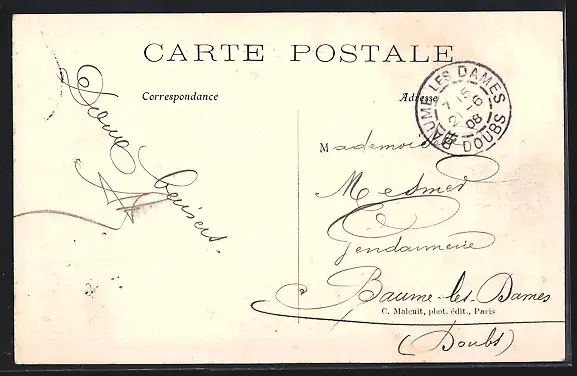 CARTE POSTALE
Correspondance
Adresse
BAUME LES DAMES
7 15
21 -6
08
DOUBS
Doux baisers
Mademoiselle
Mesmer
Gendarmerie
à Baume-les-Dames
C. Malcuit, phot. édit., Paris
(Doubs)